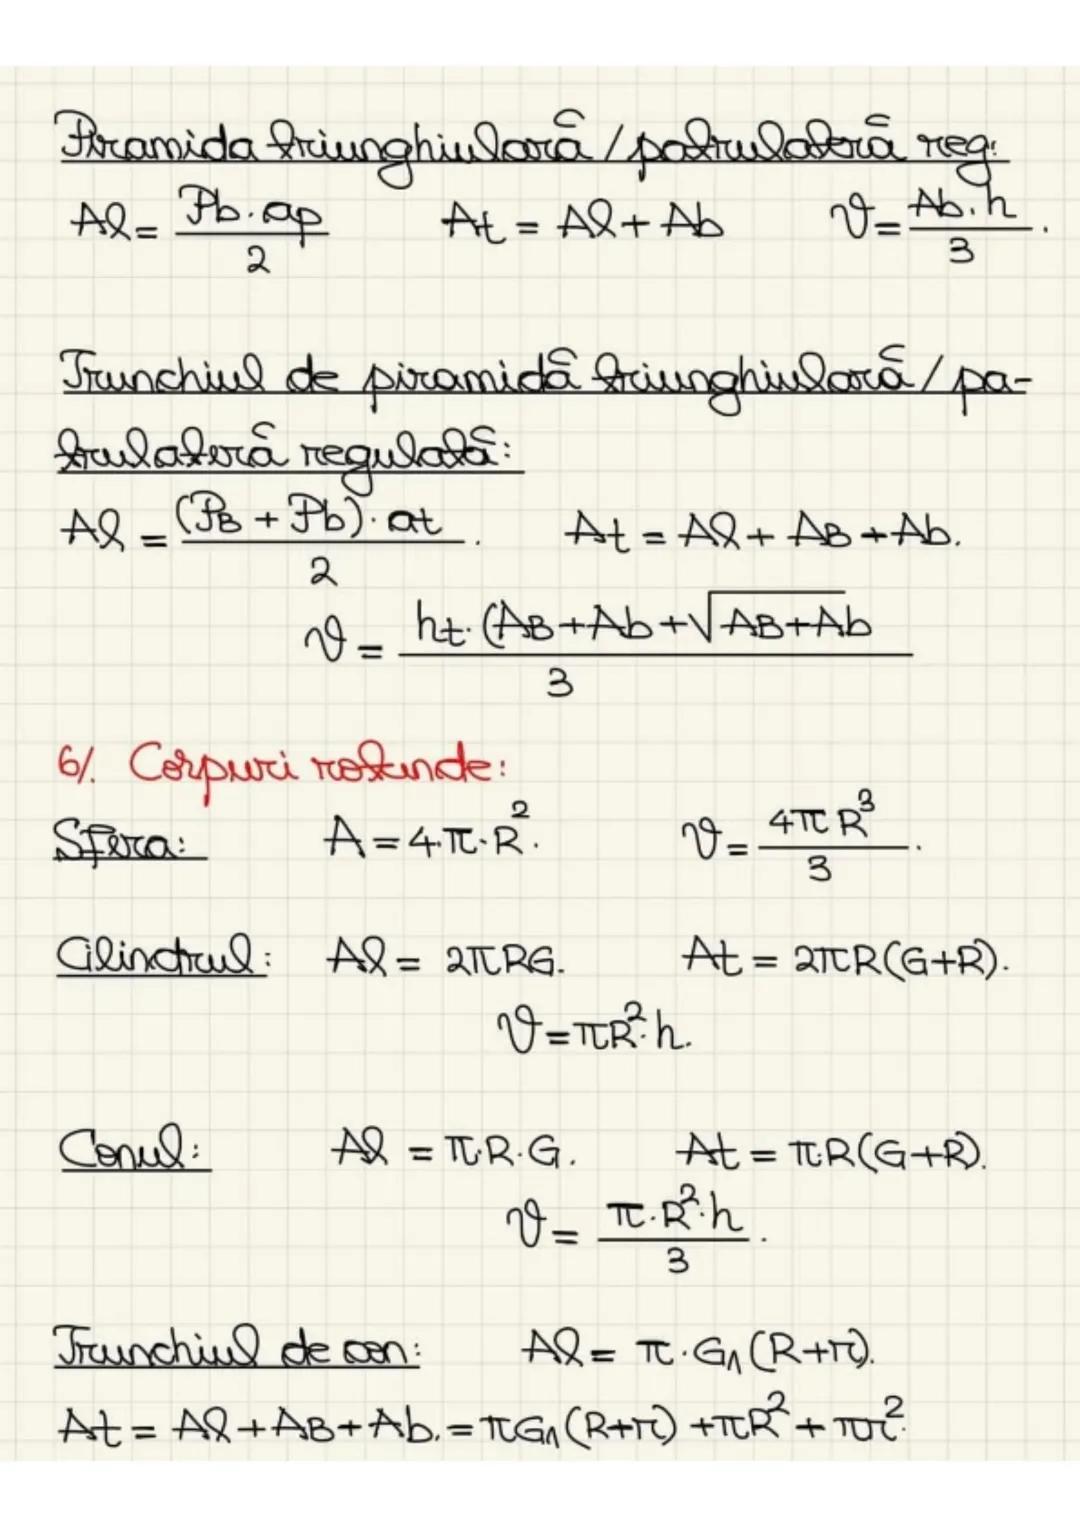 Piramida triunghiulară / patrulateră reg:
Al = Pb·ap / 2   At = Al + Ab   V = Ab·h / 3.
Trunchiul de piramidă triunghiulară / pa-
trulateră regulată:
Al = (PB + Pb)·at / 2.   At = Al + AB + Ab.
V = ht·(AB + Ab + √AB+Ab / 3
6/. Corpuri rotunde:
Sfera:   A = 4·π·R².   V = 4πR³ / 3.
Cilindrul:   Al = 2πRG.   At = 2πR(G+R).
V = πR²·h.
Conul:   Al = π·R·G.   At = π·R(G+R).
V = π·R²·h / 3.
Trunchiul de con:   Al = π·G₁(R+r).
At = Al + AB + Ab. = πG₁(R+r) + πR² + πr².